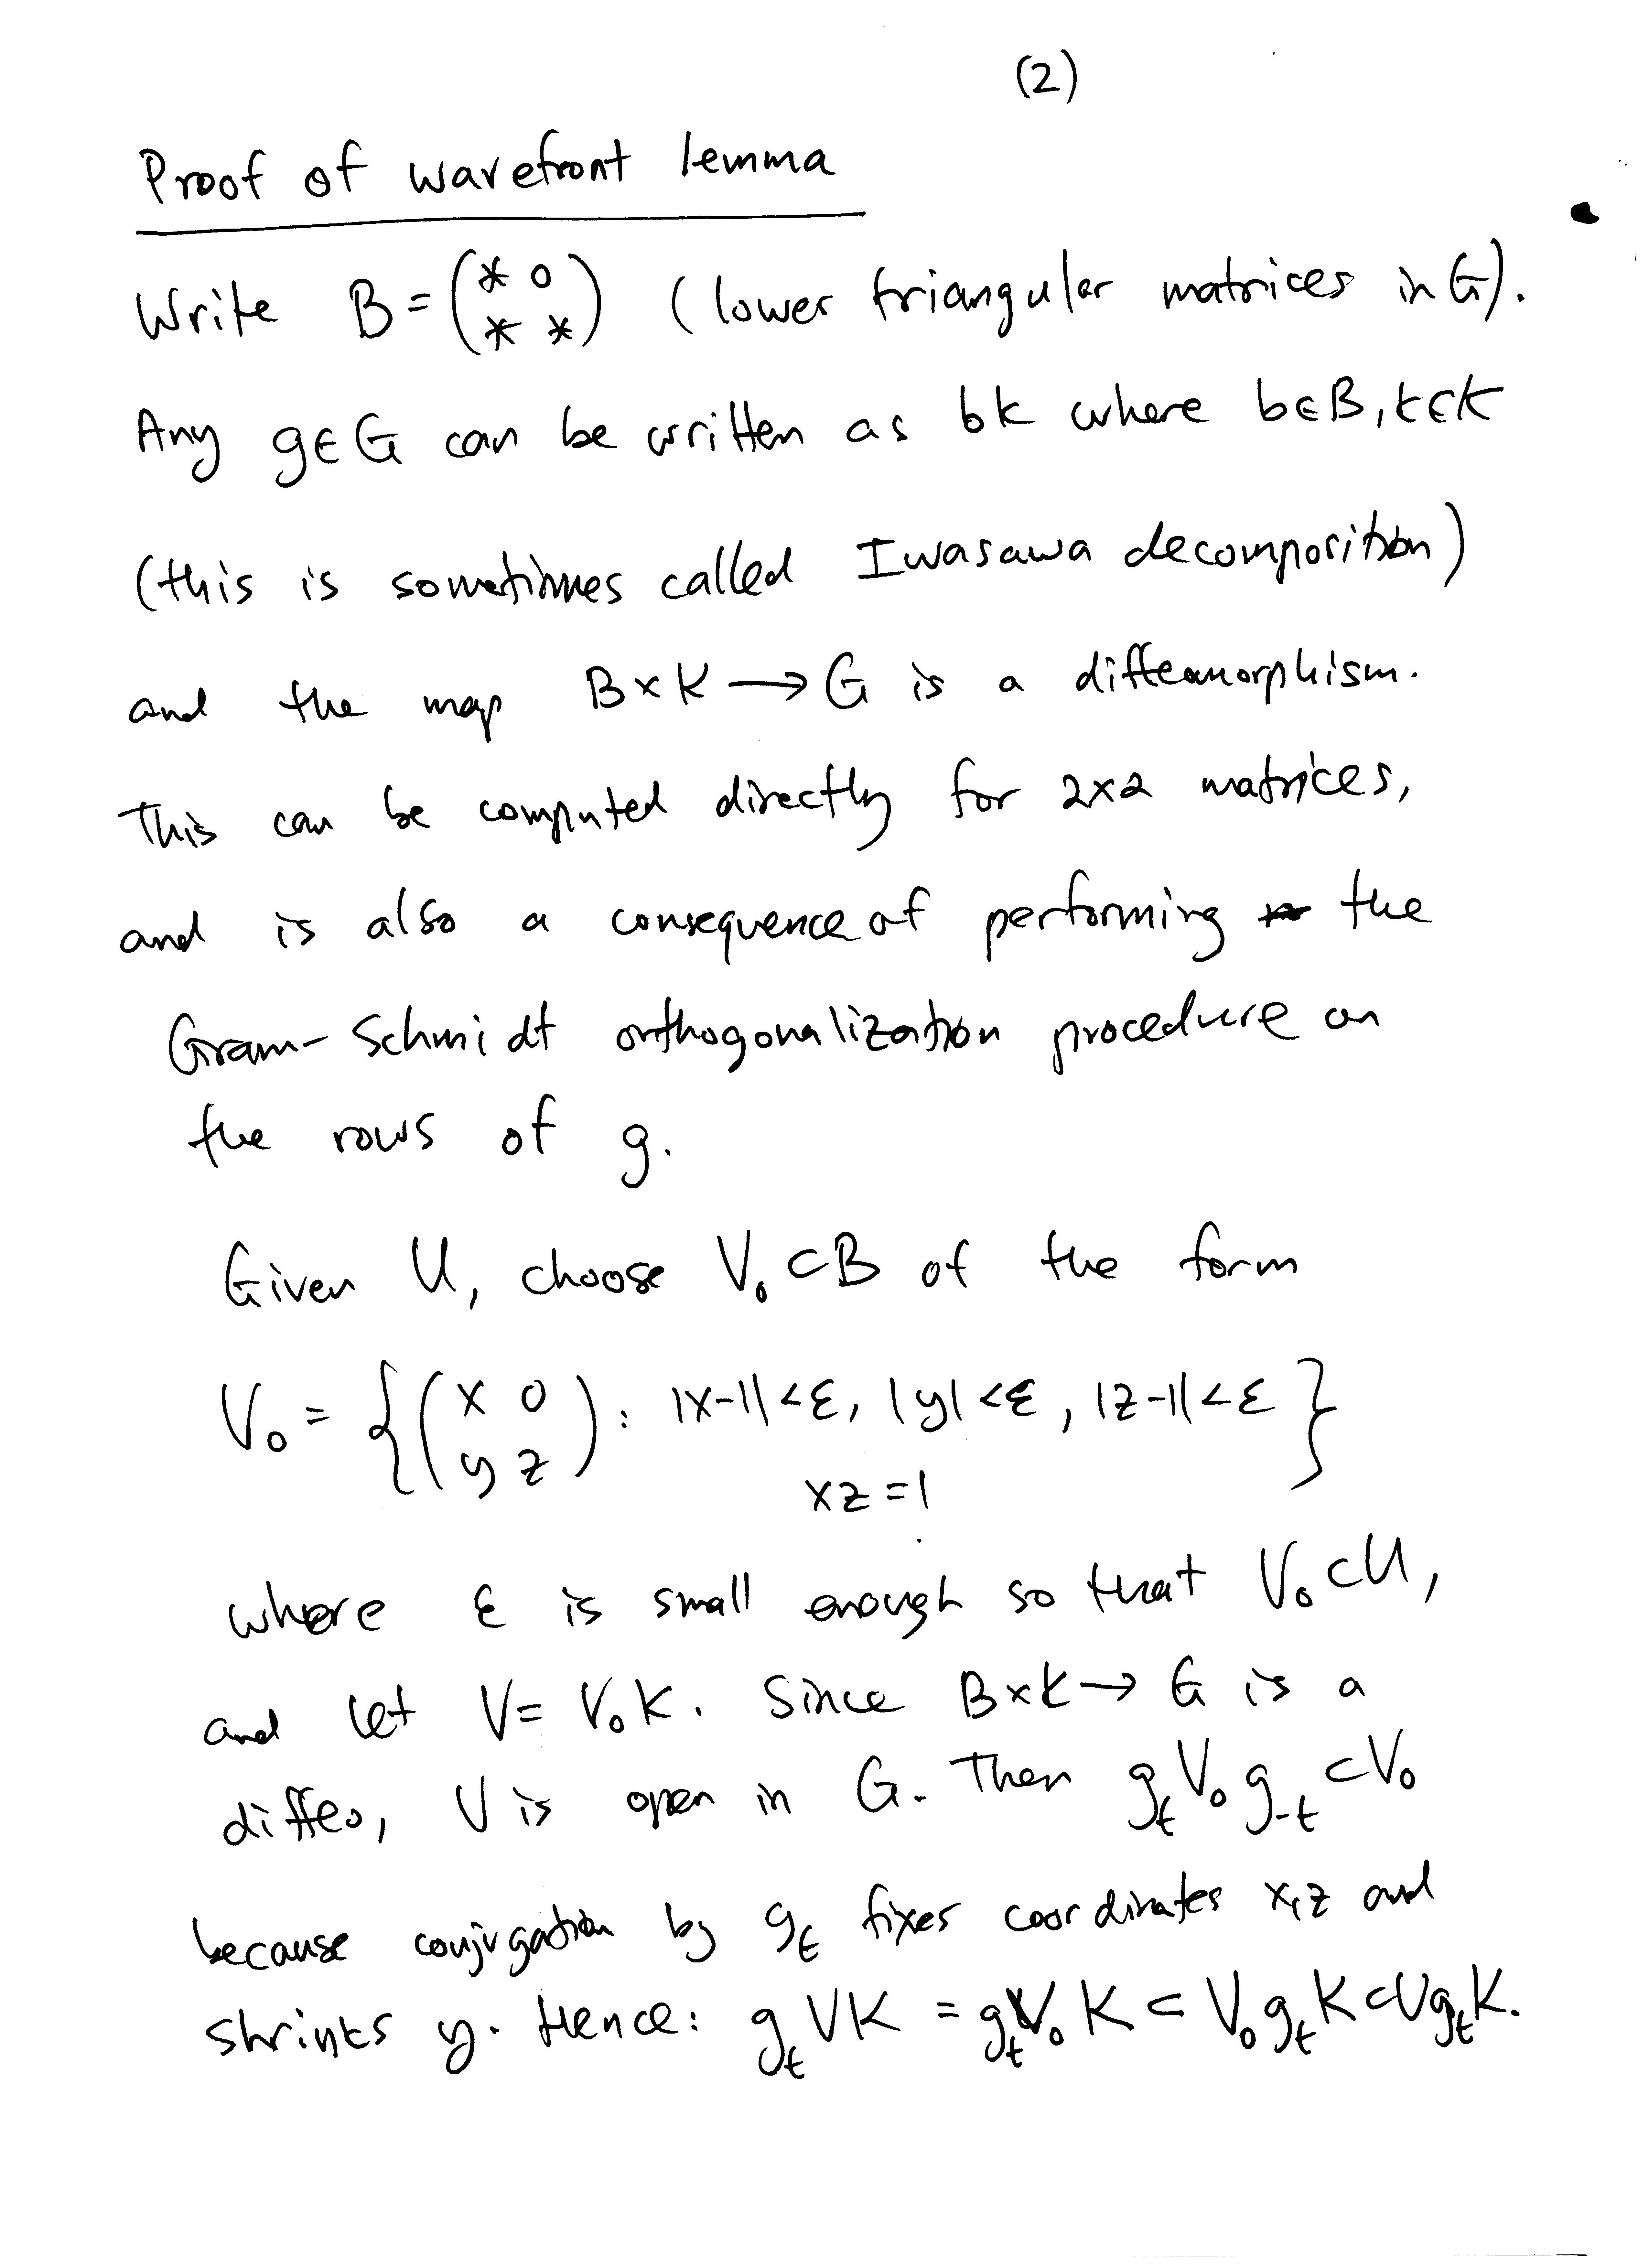 (2)
Proof of wavefront lemma
Write B = (* 0 / * *) (lower triangular matrices in G).
Any g∈G can be written as bk where b∈B, k∈K
(this is sometimes called Iwasawa decomposition)
and the map B×K ⟶ G is a diffeomorphism.
This can be computed directly for 2×2 matrices,
and is also a consequence of performing the
Gram-Schmidt orthogonalization procedure on
the rows of g.
Given U, choose V₀ ⊂ B of the form
V₀ = { (x 0 / y z) : |x-1|<ε, |y|<ε, |z-1|<ε }
xz = 1
where ε is small enough so that V₀ ⊂ U,
and let V = V₀K. Since B×K → G is a
diffeo, V is open in G. Then g_t V₀ g_{-t} ⊂ V₀
because conjugation by g_t fixes coordinates x,z and
shrinks y. Hence: g_t VK = g_t V₀ K ⊂ V₀ g_t K ⊂ U g_t K.